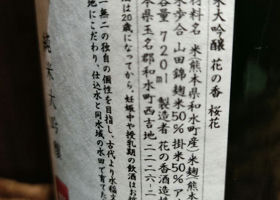 米大吟醸 花の香 桜花
材料名 米(熊本県和水町産)米麹(熊本
米歩合 山田錦麹米50%掛米50% ア
容量 720ml 製造者 花の香酒造
本県玉名郡和水町西吉地2226-2
酒は20歳になってから。妊娠中や授乳期の飲酒はお
一無二の独自の個性を目指し、古代より水稲
地にこだわり、仕込水と同水域の水田で育て
純米大吟醸